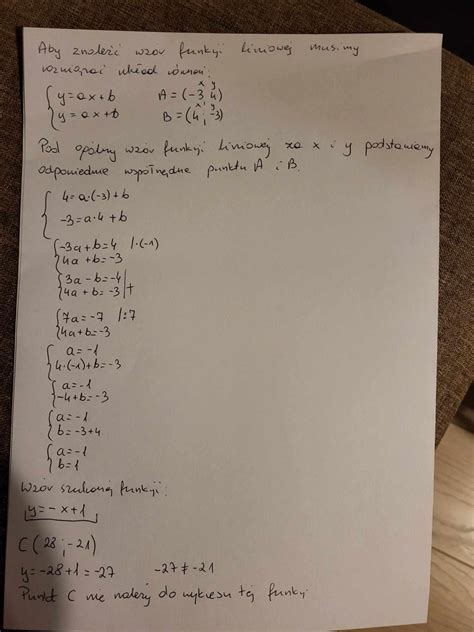 Aby znaleźć wzór funkcji liniowej musimy
rozwiązać układ równań:
{ y = ax + b   A = (-3, 4)   x y
{ y = ax + b   B = (4; -3)   x y
Pod ogólny wzór funkcji liniowej za x i y podstawiamy
odpowiednie współrzędne punktu A i B.
{ 4 = a·(-3) + b
{ -3 = a·4 + b
{ -3a + b = 4 /·(-1)
{ 4a + b = -3
{ 3a - b = -4
{ 4a + b = -3 | +
{ 7a = -7 /:7
{ 4a + b = -3
{ a = -1
{ 4·(-1) + b = -3
{ a = -1
{ -4 + b = -3
{ a = -1
{ b = -3 + 4
{ a = -1
{ b = 1
Wzór szukanej funkcji:
y = -x + 1
C (28; -21)
y = -28 + 1 = -27   -27 ≠ -21
Punkt C nie należy do wykresu tej funkcji